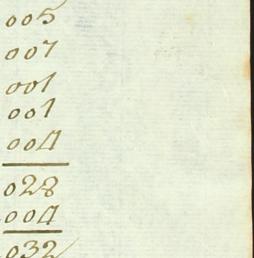 005
007
001
001
004
028
004
032